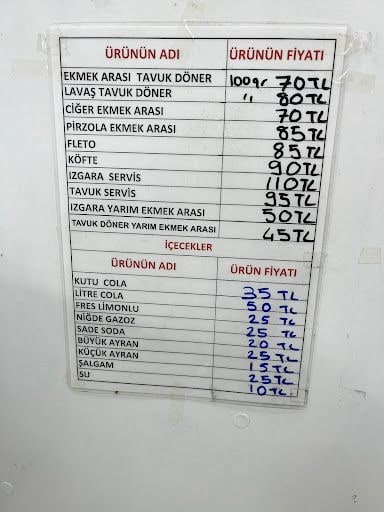 ÜRÜNÜN ADI ÜRÜNÜN FİYATI
EKMEK ARASI TAVUK DÖNER 100gr 70TL
LAVAŞ TAVUK DÖNER " 80TL
CİĞER EKMEK ARASI 70TL
PİRZOLA EKMEK ARASI 85TL
FLETO 85TL
KÖFTE 90TL
IZGARA SERVİS 110TL
TAVUK SERVİS 95TL
IZGARA YARIM EKMEK ARASI 50TL
TAVUK DÖNER YARIM EKMEK ARASI 45TL
İÇECEKLER
ÜRÜNÜN ADI ÜRÜN FİYATI
KUTU COLA 35 TL
LİTRE COLA 50 TL
FRES LİMONLU 25 TL
NİĞDE GAZOZ 25 TL
SADE SODA 20 TL
BÜYÜK AYRAN 25TL
KÜÇÜK AYRAN 15TL
ŞALGAM 25TL
SU 10TL